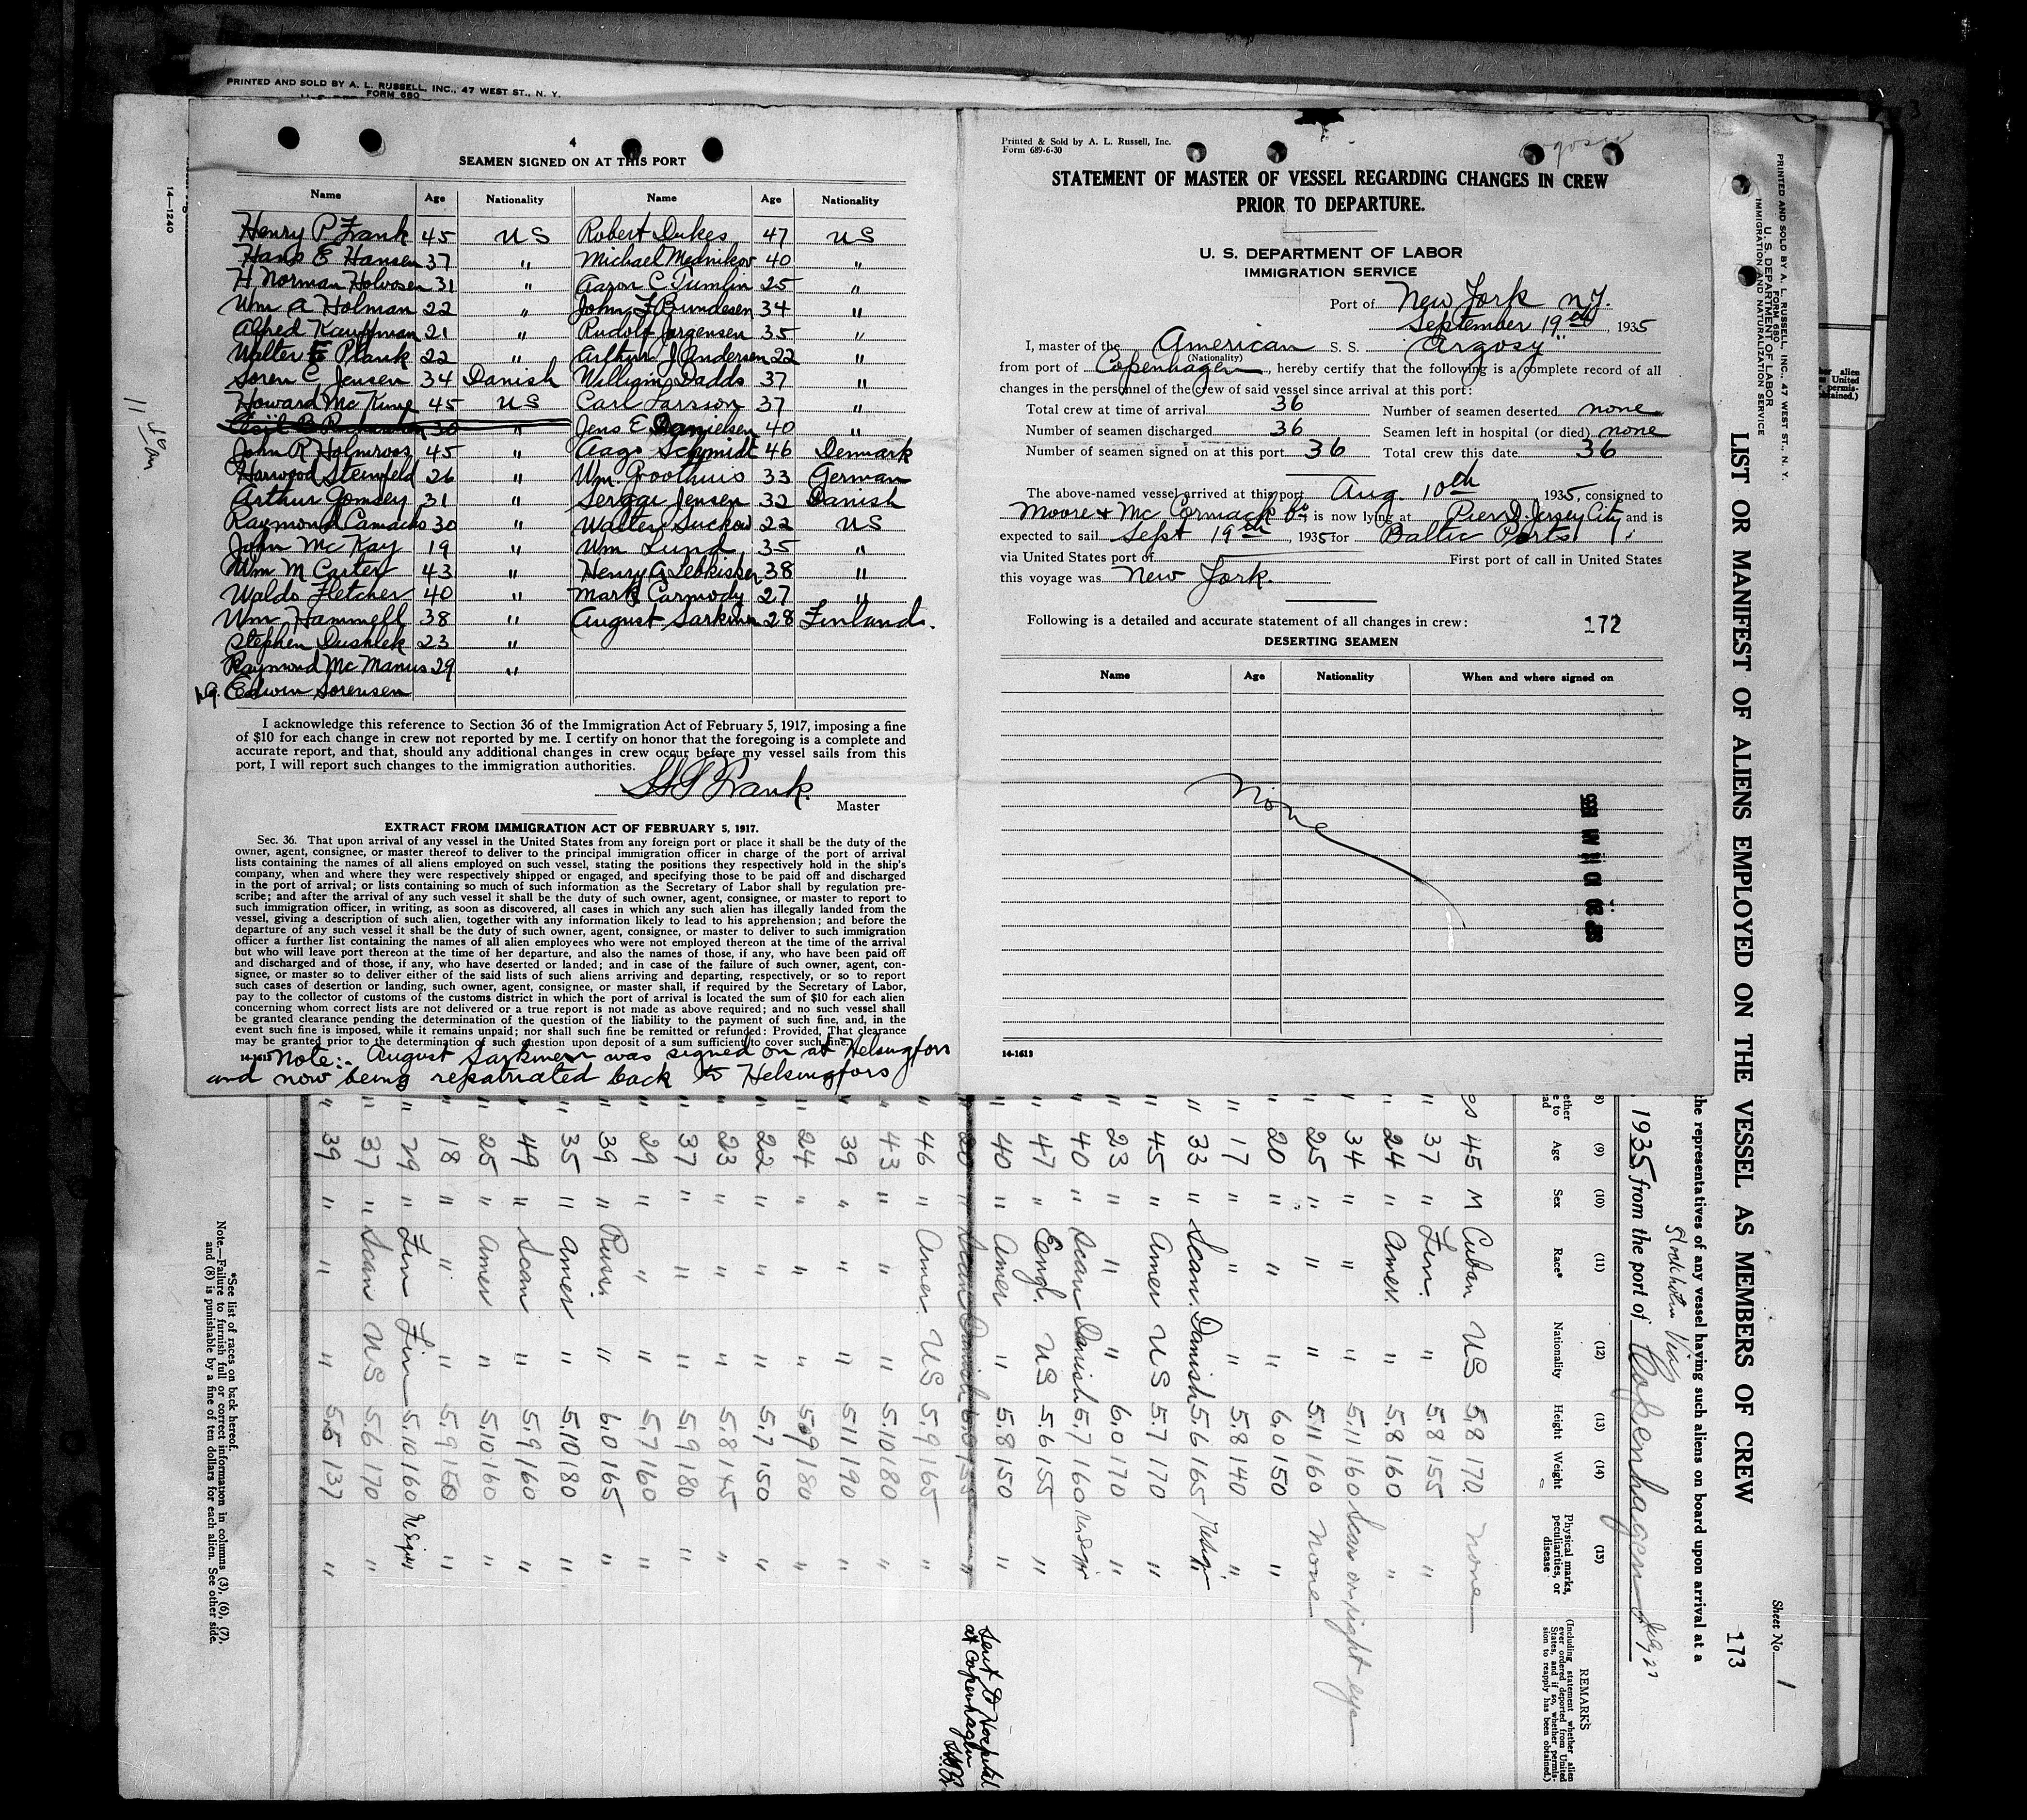 PRINTED AND SOLD BY A. L. RUSSELL, INC., 47 WEST ST., N. Y.
FORM 680
14—1240
4
SEAMEN SIGNED ON AT THIS PORT
Name Age Nationality Name Age Nationality
Henry P Frank 45 US Robert Dukes 47 US
Hans E Hansen 37 " Michael Mednikov 40 "
H Norman Holvosen 31 " Aaron C Tumlin 25 "
Wm A Holman 22 " John F Bundesen 34 "
Alfred Kauffman 21 " Rudolf Jorgensen 35 "
Walter E Plank 22 " Arthur J Andersen 22 "
Soren C Jensen 34 Danish William Dadds 37 "
Howard McKing 45 US Carl Larsson 37 "
30 " Jens E Danielsen 40 "
John R Holmroos 45 " Aago Schmidt 46 Denmark
Harwood Steinfeld 26 " Wm Groothuis 33 German
Arthur Gomsey 31 " Serggi Jensen 32 Danish
Raymond Camacho 30 " Walter Suckow 22 US
John McKay 19 " Wm Lund 35 "
Wm M Carter 43 " Henry A Lebkisher 38 "
Waldo Fletcher 40 " Mark Carmody 27 "
Wm Hammell 38 " August Sarkinen 28 Finland.
Stephen Dushlek 23 "
Raymond McManus 29 "
Edwin Sorensen
I acknowledge this reference to Section 36 of the Immigration Act of February 5, 1917, imposing a fine
of $10 for each change in crew not reported by me. I certify on honor that the foregoing is a complete and
accurate report, and that, should any additional changes in crew occur before my vessel sails from this
port, I will report such changes to the immigration authorities.
H P Frank.
Master
EXTRACT FROM IMMIGRATION ACT OF FEBRUARY 5, 1917.
Sec. 36. That upon arrival of any vessel in the United States from any foreign port or place it shall be the duty of the
owner, agent, consignee, or master thereof to deliver to the principal immigration officer in charge of the port of arrival
lists containing the names of all aliens employed on such vessel, stating the positions they respectively hold in the ship's
company, when and where they were respectively shipped or engaged, and specifying those to be paid off and discharged
in the port of arrival; or lists containing so much of such information as the Secretary of Labor shall by regulation pre-
scribe; and after the arrival of any such vessel it shall be the duty of such owner, agent, consignee, or master to report to
such immigration officer, in writing, as soon as discovered, all cases in which any such alien has illegally landed from the
vessel, giving a description of such alien, together with any information likely to lead to his apprehension; and before the
departure of any such vessel it shall be the duty of such owner, agent, consignee, or master to deliver to such immigration
officer a further list containing the names of all alien employees who were not employed thereon at the time of the arrival
but who will leave port thereon at the time of her departure, and also the names of those, if any, who have been paid off
and discharged and of those, if any, who have deserted or landed; and in case of the failure of such owner, agent, con-
signee, or master so to deliver either of the said lists of such aliens arriving and departing, respectively, or so to report
such cases of desertion or landing, such owner, agent, consignee, or master shall, if required by the Secretary of Labor,
pay to the collector of customs of the customs district in which the port of arrival is located the sum of $10 for each alien
concerning whom correct lists are not delivered or a true report is not made as above required; and no such vessel shall
be granted clearance pending the determination of the question of the liability to the payment of such fine, and, in the
event such fine is imposed, while it remains unpaid; nor shall such fine be remitted or refunded: Provided, That clearance
may be granted prior to the determination of such question upon deposit of a sum sufficient to cover such fine.
14-1613
Note:. August Sarkinen was signed on at Helsingfors
and now being repatriated back to Helsingfors
Printed & Sold by A. L. Russell, Inc.
Form 689-6-30
Argosy
STATEMENT OF MASTER OF VESSEL REGARDING CHANGES IN CREW
PRIOR TO DEPARTURE.
U. S. DEPARTMENT OF LABOR
IMMIGRATION SERVICE
Port of New York N.Y.
September 19th, 1935
I, master of the American S. S. "Argosy"
(Nationality)
from port of Copenhagen, hereby certify that the following is a complete record of all
changes in the personnel of the crew of said vessel since arrival at this port:
Total crew at time of arrival 36 Number of seamen deserted none
Number of seamen discharged 36 Seamen left in hospital (or died) none
Number of seamen signed on at this port 36 Total crew this date 36
The above-named vessel arrived at this port Aug. 10th 1935, consigned to
Moore & McCormack Co; is now lying at Pier D Jersey City and is
expected to sail Sept 19th, 1935 for Baltic Ports
via United States port of First port of call in United States
this voyage was New York.
Following is a detailed and accurate statement of all changes in crew:
172
DESERTING SEAMEN
Name Age Nationality When and where signed on
None
SEP 20 10 11 AM 1935
14-1613
PRINTED AND SOLD BY A. L. RUSSELL, INC., 47 WEST ST., N. Y.
FORM 680
U. S. DEPARTMENT OF LABOR
IMMIGRATION AND NATURALIZATION SERVICE
Sheet No. 1
LIST OR MANIFEST OF ALIENS EMPLOYED ON THE VESSEL AS MEMBERS OF CREW
173
the representatives of any vessel having such aliens on board upon arrival at a
Stockholm
, 1935 from the port of Copenhagen July 27
(9) (10) (11) (12) (13) (14) (15)
Age Sex Race* Nationality Height Weight Physical marks, peculiarities, or disease
REMARKS
(Including statement whether alien ever ordered deported from United States, and if so, whether permission to reapply has been obtained.)
45 M Cuban US 5.8 170 None
37 " Fin. " 5.8 155 "
24 " Amer. " 5.8 160 "
34 " " " 5.11 160 Scar on right eye
25 " " " 5.11 160 None
20 " " " 6.0 150 "
17 " " " 5.8 140 "
33 " Scan. Danish 5.6 165
45 " Amer US 5.7 170 "
23 " " " 6.0 170 "
40 " Scan Danish 5.7 160
47 " Engl. US 5.6 155 "
40 " Amer " 5.8 150 "
20 " Scan Danish "
Sent to Hospital
at Copenhagen
46 " Amer. US 5.9 165 "
43 " " " 5.10 180 "
39 " " " 5.11 190 "
24 " " " 5.9 180 "
22 " " " 5.7 150 "
23 " " " 5.8 145 "
37 " " " 5.9 180 "
29 " " " 5.7 160 "
39 " Russ. " 6.0 165 "
35 " Amer " 5.10 180 "
49 " Scan " 5.9 160 "
25 " Amer " 5.10 160 "
18 " " " 5.9 150 "
29 " Fin Fin 5.10 160
37 " Scan US 5.6 170 "
39 " " " 5.5 137 "
*See list of races on back hereof.
Note.—Failure to furnish full or correct information in columns (3), (6), (7),
and (8) is punishable by a fine of ten dollars for each alien. See other side.